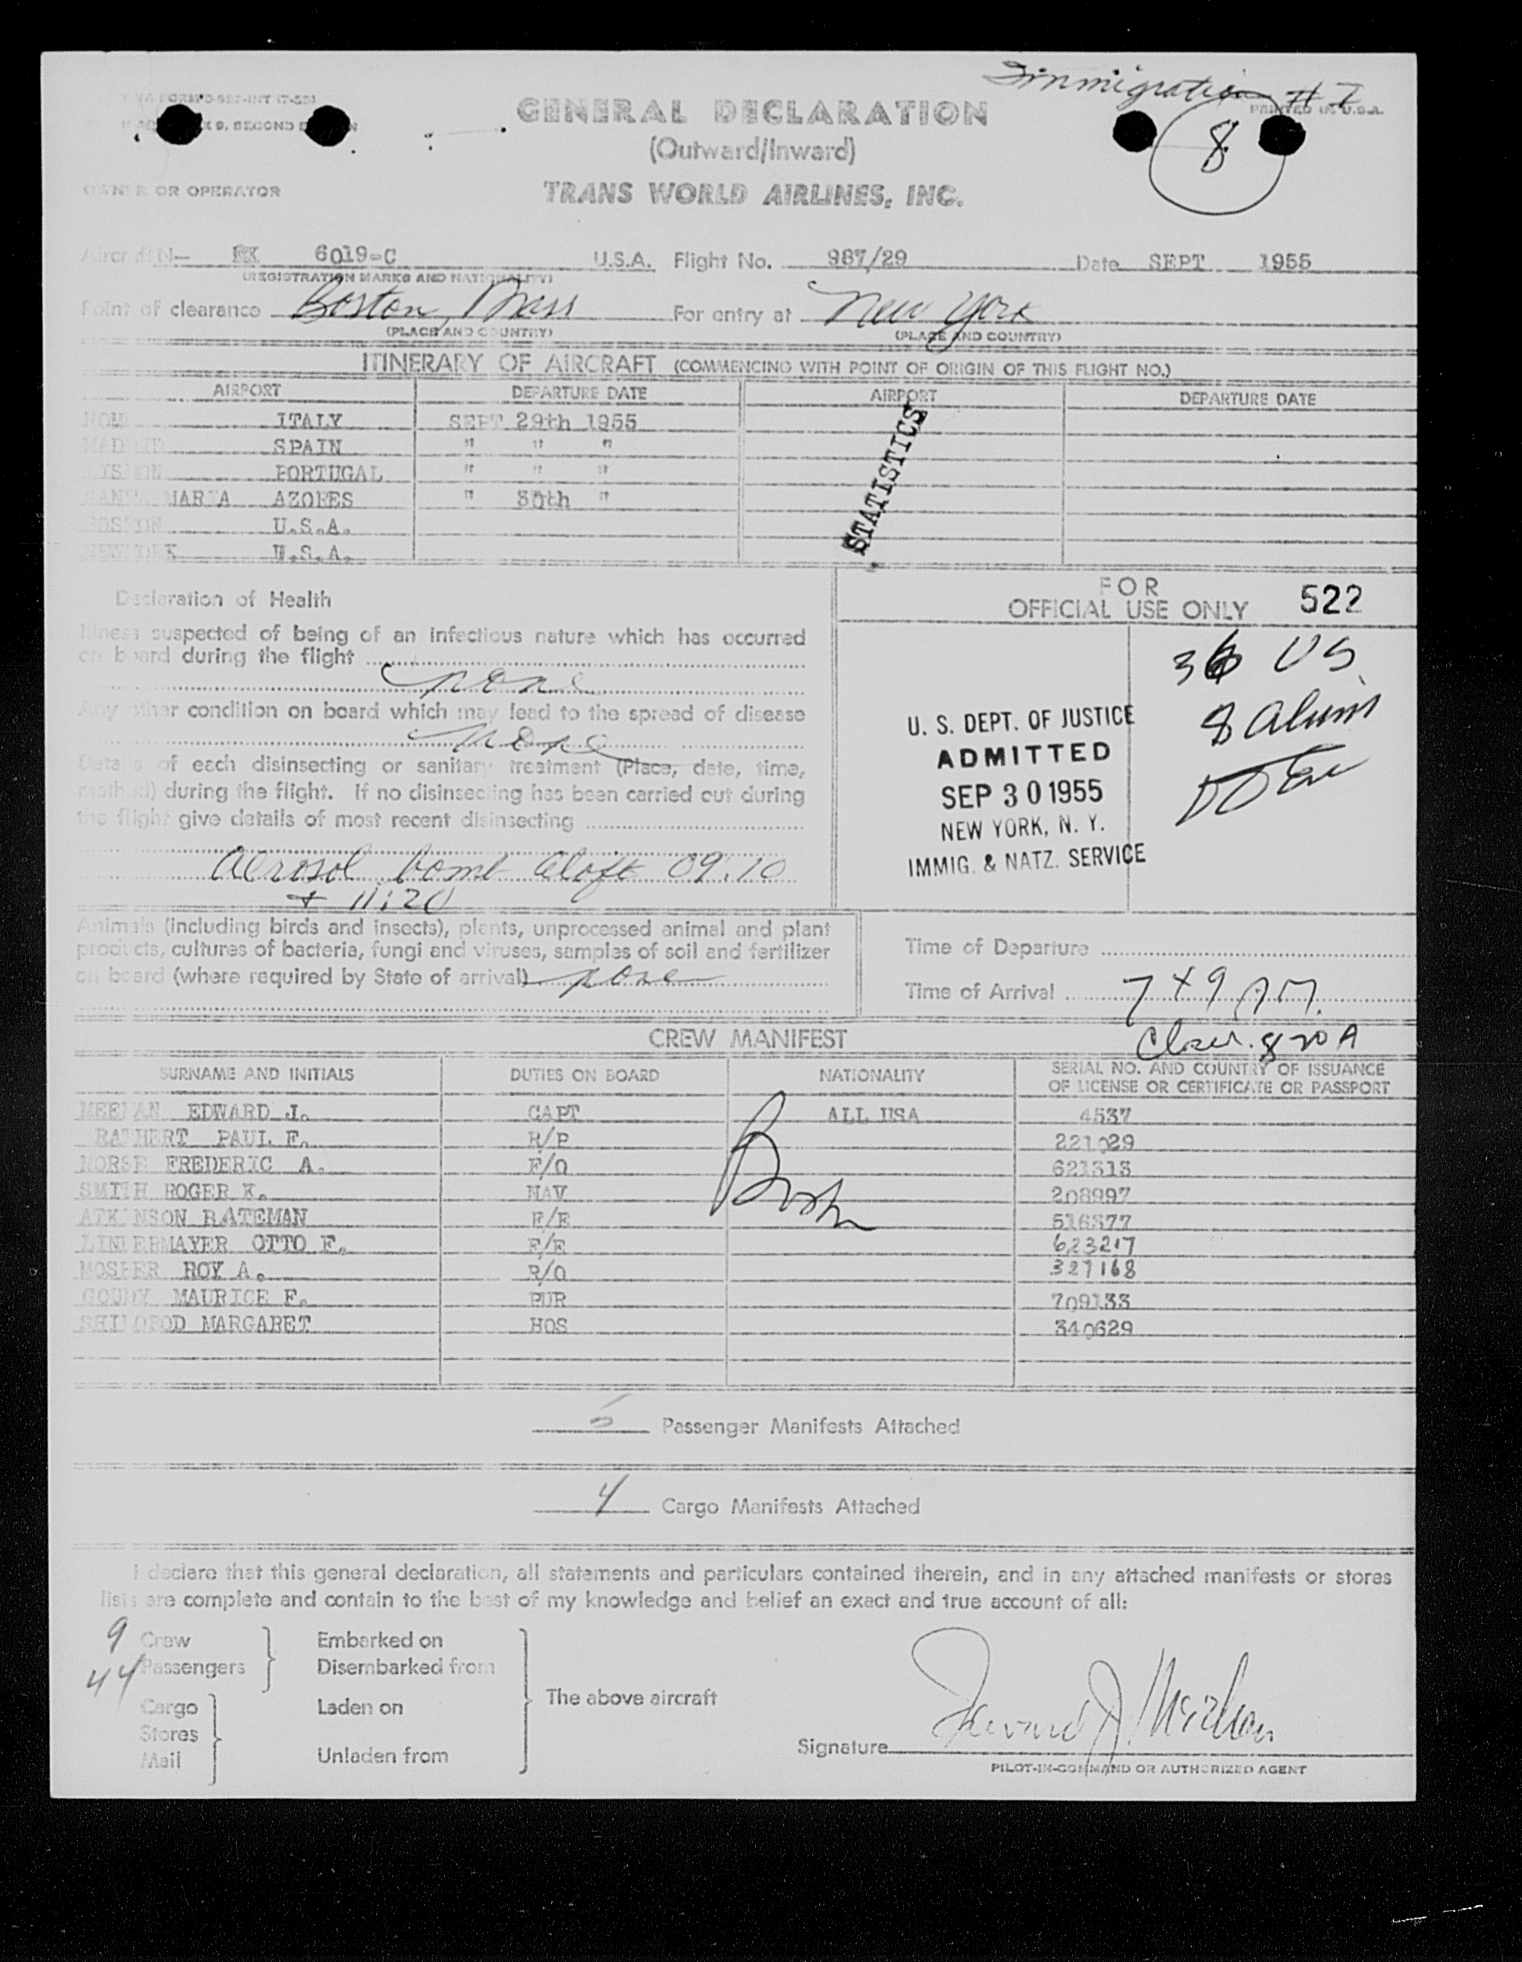 Immigration
PRINTED IN U.S.A.
8
GENERAL DECLARATION
(Outward/Inward)
OWNER OR OPERATOR
TRANS WORLD AIRLINES, INC.
Aircraft N— 6019-C U.S.A. Flight No. 987/29 Date SEPT 1955
(REGISTRATION MARKS AND NATIONALITY)
Point of clearance Boston, Mass For entry at New York
(PLACE AND COUNTRY) (PLACE AND COUNTRY)
ITINERARY OF AIRCRAFT (COMMENCING WITH POINT OF ORIGIN OF THIS FLIGHT NO.)
AIRPORT DEPARTURE DATE AIRPORT DEPARTURE DATE
ITALY SEPT 29th 1955
MADRID SPAIN " " "
LISBON PORTUGAL " " "
SANTA MARIA AZORES " 30th "
BOSTON U.S.A.
NEW YORK U.S.A.
STATISTICS
Declaration of Health
Illness suspected of being of an infectious nature which has occurred
on board during the flight
none
Any other condition on board which may lead to the spread of disease
none
Details of each disinsecting or sanitary treatment (Place, date, time,
method) during the flight. If no disinsecting has been carried out during
the flight give details of most recent disinsecting
aerosol bomb aloft 09:10
+ 11:20
FOR
OFFICIAL USE ONLY 522
36 US
8 aliens
U. S. DEPT. OF JUSTICE
ADMITTED
SEP 30 1955
NEW YORK, N. Y.
IMMIG. & NATZ. SERVICE
Animals (including birds and insects), plants, unprocessed animal and plant
products, cultures of bacteria, fungi and viruses, samples of soil and fertilizer
on board (where required by State of arrival) none
Time of Departure
Time of Arrival 749 AM.
Clear. 820 A
CREW MANIFEST
SURNAME AND INITIALS DUTIES ON BOARD NATIONALITY SERIAL NO. AND COUNTRY OF ISSUANCE
OF LICENSE OR CERTIFICATE OR PASSPORT
MEEHAN EDWARD J. CAPT ALL USA 4537
RATHERT PAUL F. R/P 221029
MORSE FREDERIC A. F/O 621313
SMITH ROGER K. NAV 208997
ATKINSON BATEMAN F/E 516377
LINDERMAYER OTTO F. F/E 623217
MOSHER ROY A. R/O 327168
MAURICE F. PUR 709133
MARGARET HOS 340629
5 Passenger Manifests Attached
4 Cargo Manifests Attached
I declare that this general declaration, all statements and particulars contained therein, and in any attached manifests or stores
lists are complete and contain to the best of my knowledge and belief an exact and true account of all:
9 Crew Embarked on
44 Passengers Disembarked from
Cargo Laden on The above aircraft
Stores
Mail Unladen from
Signature Edward J. Meehan
PILOT-IN-COMMAND OR AUTHORIZED AGENT